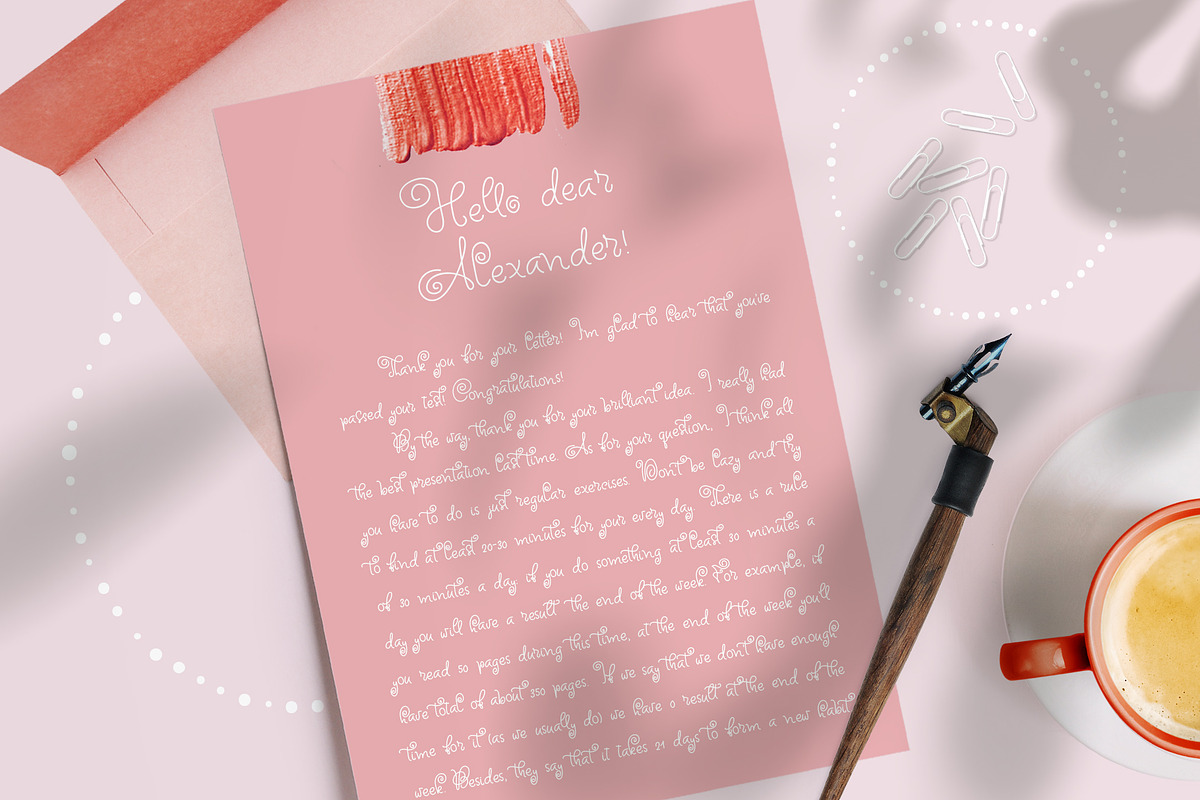 Hello dear
Alexander!
Thank you for your letter! I'm glad to hear that you've
passed your test! Congratulations!
By the way, thank you for your brilliant idea. I really had
the best presentation last time. As for your question, I think all
you have to do is just regular exercises. Won't be lazy and try
to find at least 20-30 minutes for your every day. There is a rule
of 30 minutes a day: if you do something at least 30 minutes a
day you will have a result the end of the week. For example, if
you read 50 pages during this time, at the end of the week you'll
have total of about 350 pages. If we say that we don't have enough
time for it (as we usually do) we have 0 result at the end of the
week. Besides, they say that it takes 21 days to form a new habit